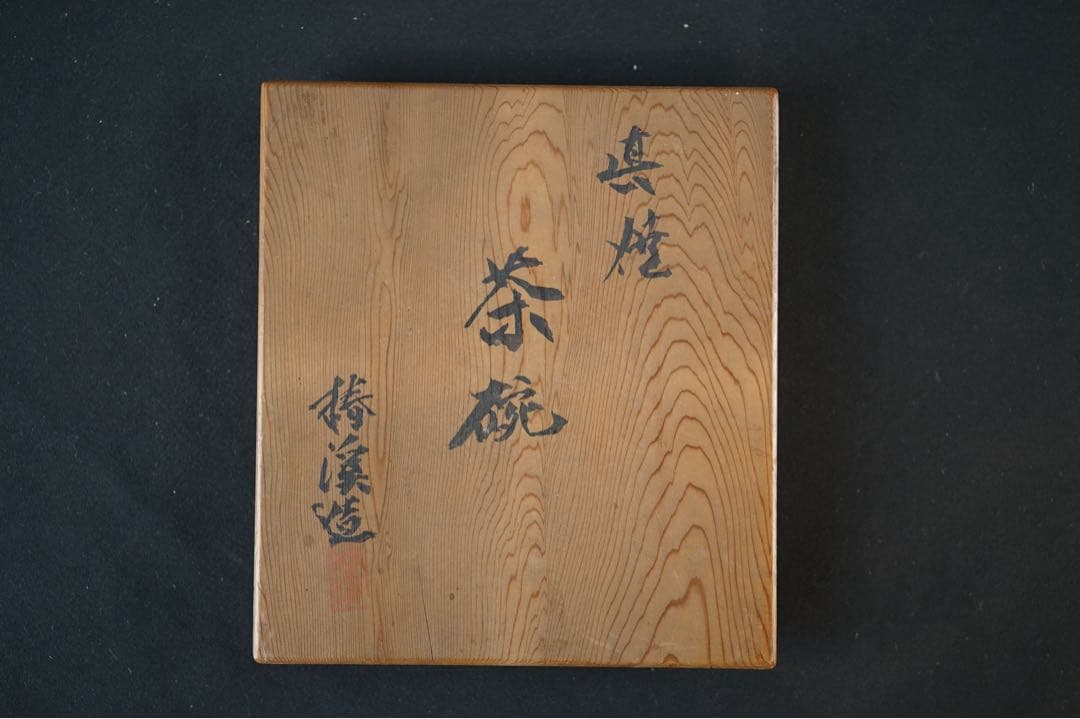 真焼
茶碗
椿渓造